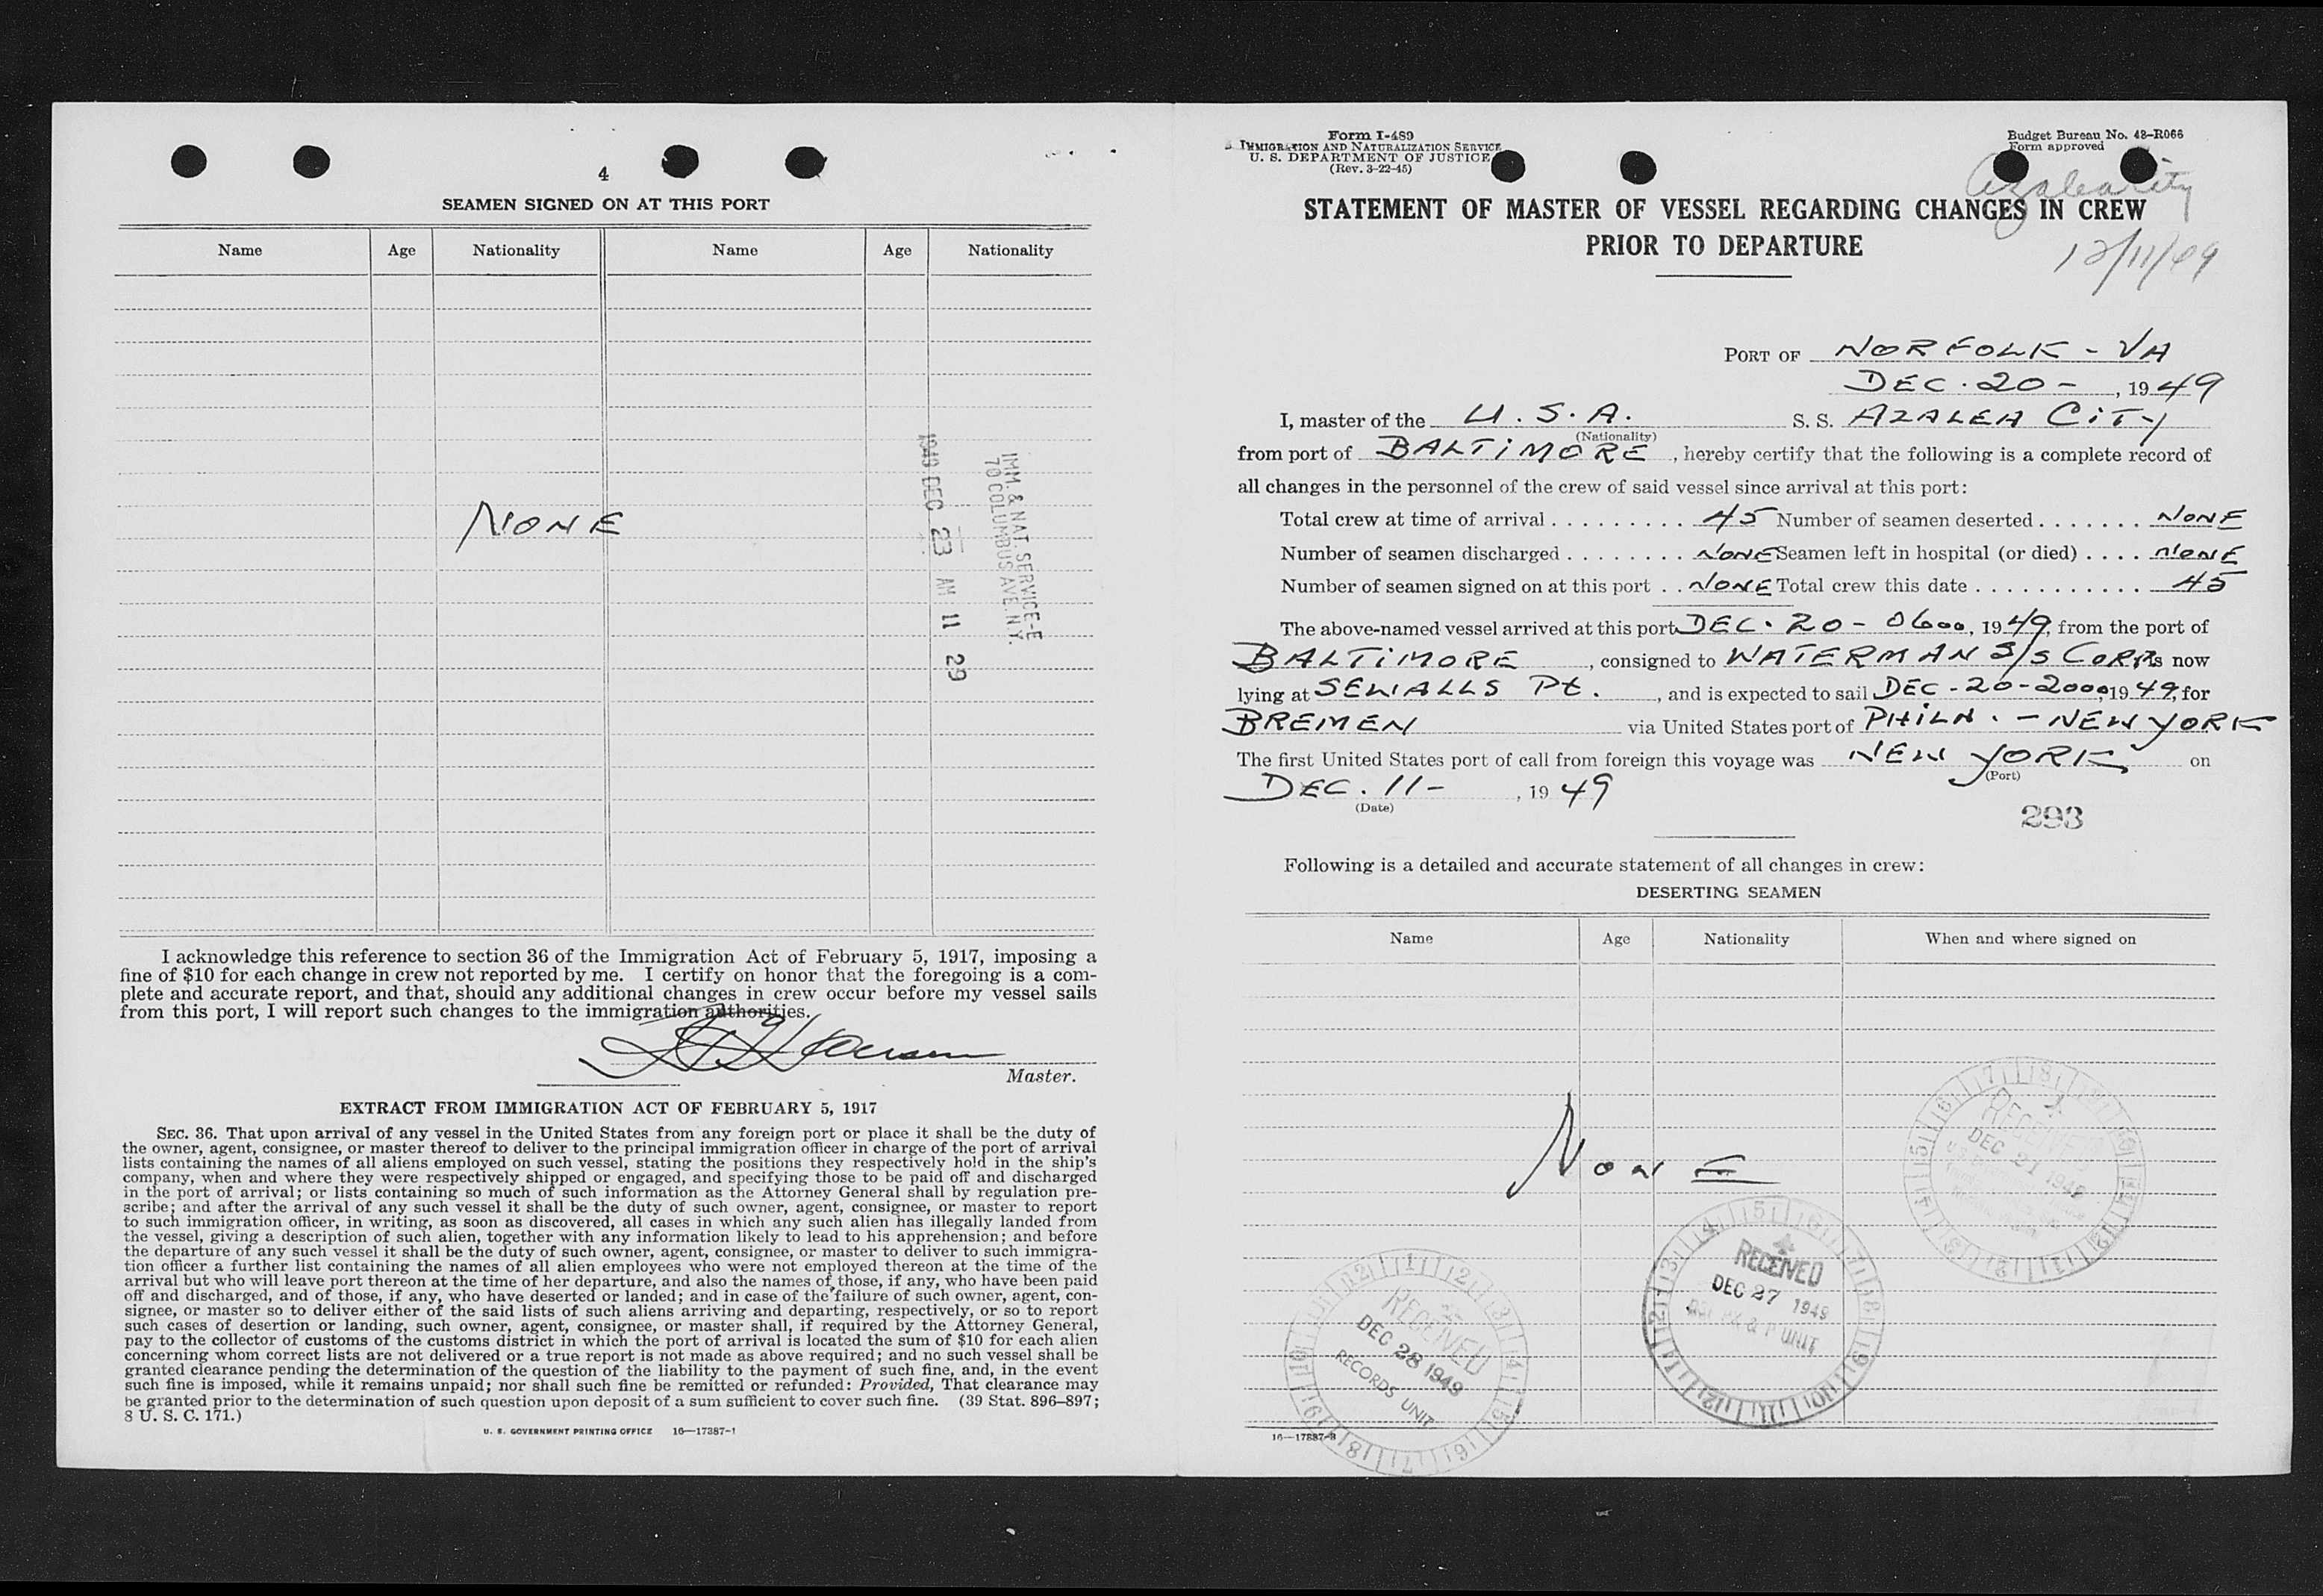 4
SEAMEN SIGNED ON AT THIS PORT
Name Age Nationality Name Age Nationality
NONE
IMM. & NAT. SERVICE-E
70 COLUMBUS AVE. N.Y.
1949 DEC 23 AM 11 29
I acknowledge this reference to section 36 of the Immigration Act of February 5, 1917, imposing a
fine of $10 for each change in crew not reported by me. I certify on honor that the foregoing is a com-
plete and accurate report, and that, should any additional changes in crew occur before my vessel sails
from this port, I will report such changes to the immigration authorities.
Master.
EXTRACT FROM IMMIGRATION ACT OF FEBRUARY 5, 1917
SEC. 36. That upon arrival of any vessel in the United States from any foreign port or place it shall be the duty of
the owner, agent, consignee, or master thereof to deliver to the principal immigration officer in charge of the port of arrival
lists containing the names of all aliens employed on such vessel, stating the positions they respectively hold in the ship's
company, when and where they were respectively shipped or engaged, and specifying those to be paid off and discharged
in the port of arrival; or lists containing so much of such information as the Attorney General shall by regulation pre-
scribe; and after the arrival of any such vessel it shall be the duty of such owner, agent, consignee, or master to report
to such immigration officer, in writing, as soon as discovered, all cases in which any such alien has illegally landed from
the vessel, giving a description of such alien, together with any information likely to lead to his apprehension; and before
the departure of any such vessel it shall be the duty of such owner, agent, consignee, or master to deliver to such immigra-
tion officer a further list containing the names of all alien employees who were not employed thereon at the time of the
arrival but who will leave port thereon at the time of her departure, and also the names of those, if any, who have been paid
off and discharged, and of those, if any, who have deserted or landed; and in case of the failure of such owner, agent, con-
signee, or master so to deliver either of the said lists of such aliens arriving and departing, respectively, or so to report
such cases of desertion or landing, such owner, agent, consignee, or master shall, if required by the Attorney General,
pay to the collector of customs of the customs district in which the port of arrival is located the sum of $10 for each alien
concerning whom correct lists are not delivered or a true report is not made as above required; and no such vessel shall be
granted clearance pending the determination of the question of the liability to the payment of such fine, and, in the event
such fine is imposed, while it remains unpaid; nor shall such fine be remitted or refunded: Provided, That clearance may
be granted prior to the determination of such question upon deposit of a sum sufficient to cover such fine. (39 Stat. 896–897;
8 U. S. C. 171.)
U. S. GOVERNMENT PRINTING OFFICE 16—17387-1
Form I-489
IMMIGRATION AND NATURALIZATION SERVICE
U. S. DEPARTMENT OF JUSTICE
(Rev. 3-22-45)
Budget Bureau No. 43-R066
Form approved
Azalea City
12/11/49
STATEMENT OF MASTER OF VESSEL REGARDING CHANGES IN CREW
PRIOR TO DEPARTURE
PORT OF NORFOLK - VA
DEC. 20 - , 1949
I, master of the U.S.A. S. S. AZALEA CITY
(Nationality)
from port of BALTIMORE , hereby certify that the following is a complete record of
all changes in the personnel of the crew of said vessel since arrival at this port:
Total crew at time of arrival . . . . . . . . . 45 Number of seamen deserted . . . . . . . NONE
Number of seamen discharged . . . . . . . . NONE Seamen left in hospital (or died) . . . . NONE
Number of seamen signed on at this port . . NONE Total crew this date . . . . . . . . . . . . 45
The above-named vessel arrived at this port DEC. 20 - 0600, 1949, from the port of
BALTIMORE , consigned to WATERMAN S/S CORP. is now
lying at SEWALLS Pt. , and is expected to sail DEC - 20 - 2000 1949, for
BREMEN via United States port of PHILA. - NEW YORK
The first United States port of call from foreign this voyage was NEW YORK on
(Port)
DEC. 11 - , 1949
(Date)
293
Following is a detailed and accurate statement of all changes in crew:
DESERTING SEAMEN
Name Age Nationality When and where signed on
NONE
RECEIVED
DEC 21 1949
RECEIVED
DEC 27 1949
UNIT
RECEIVED
DEC 28 1949
RECORDS UNIT